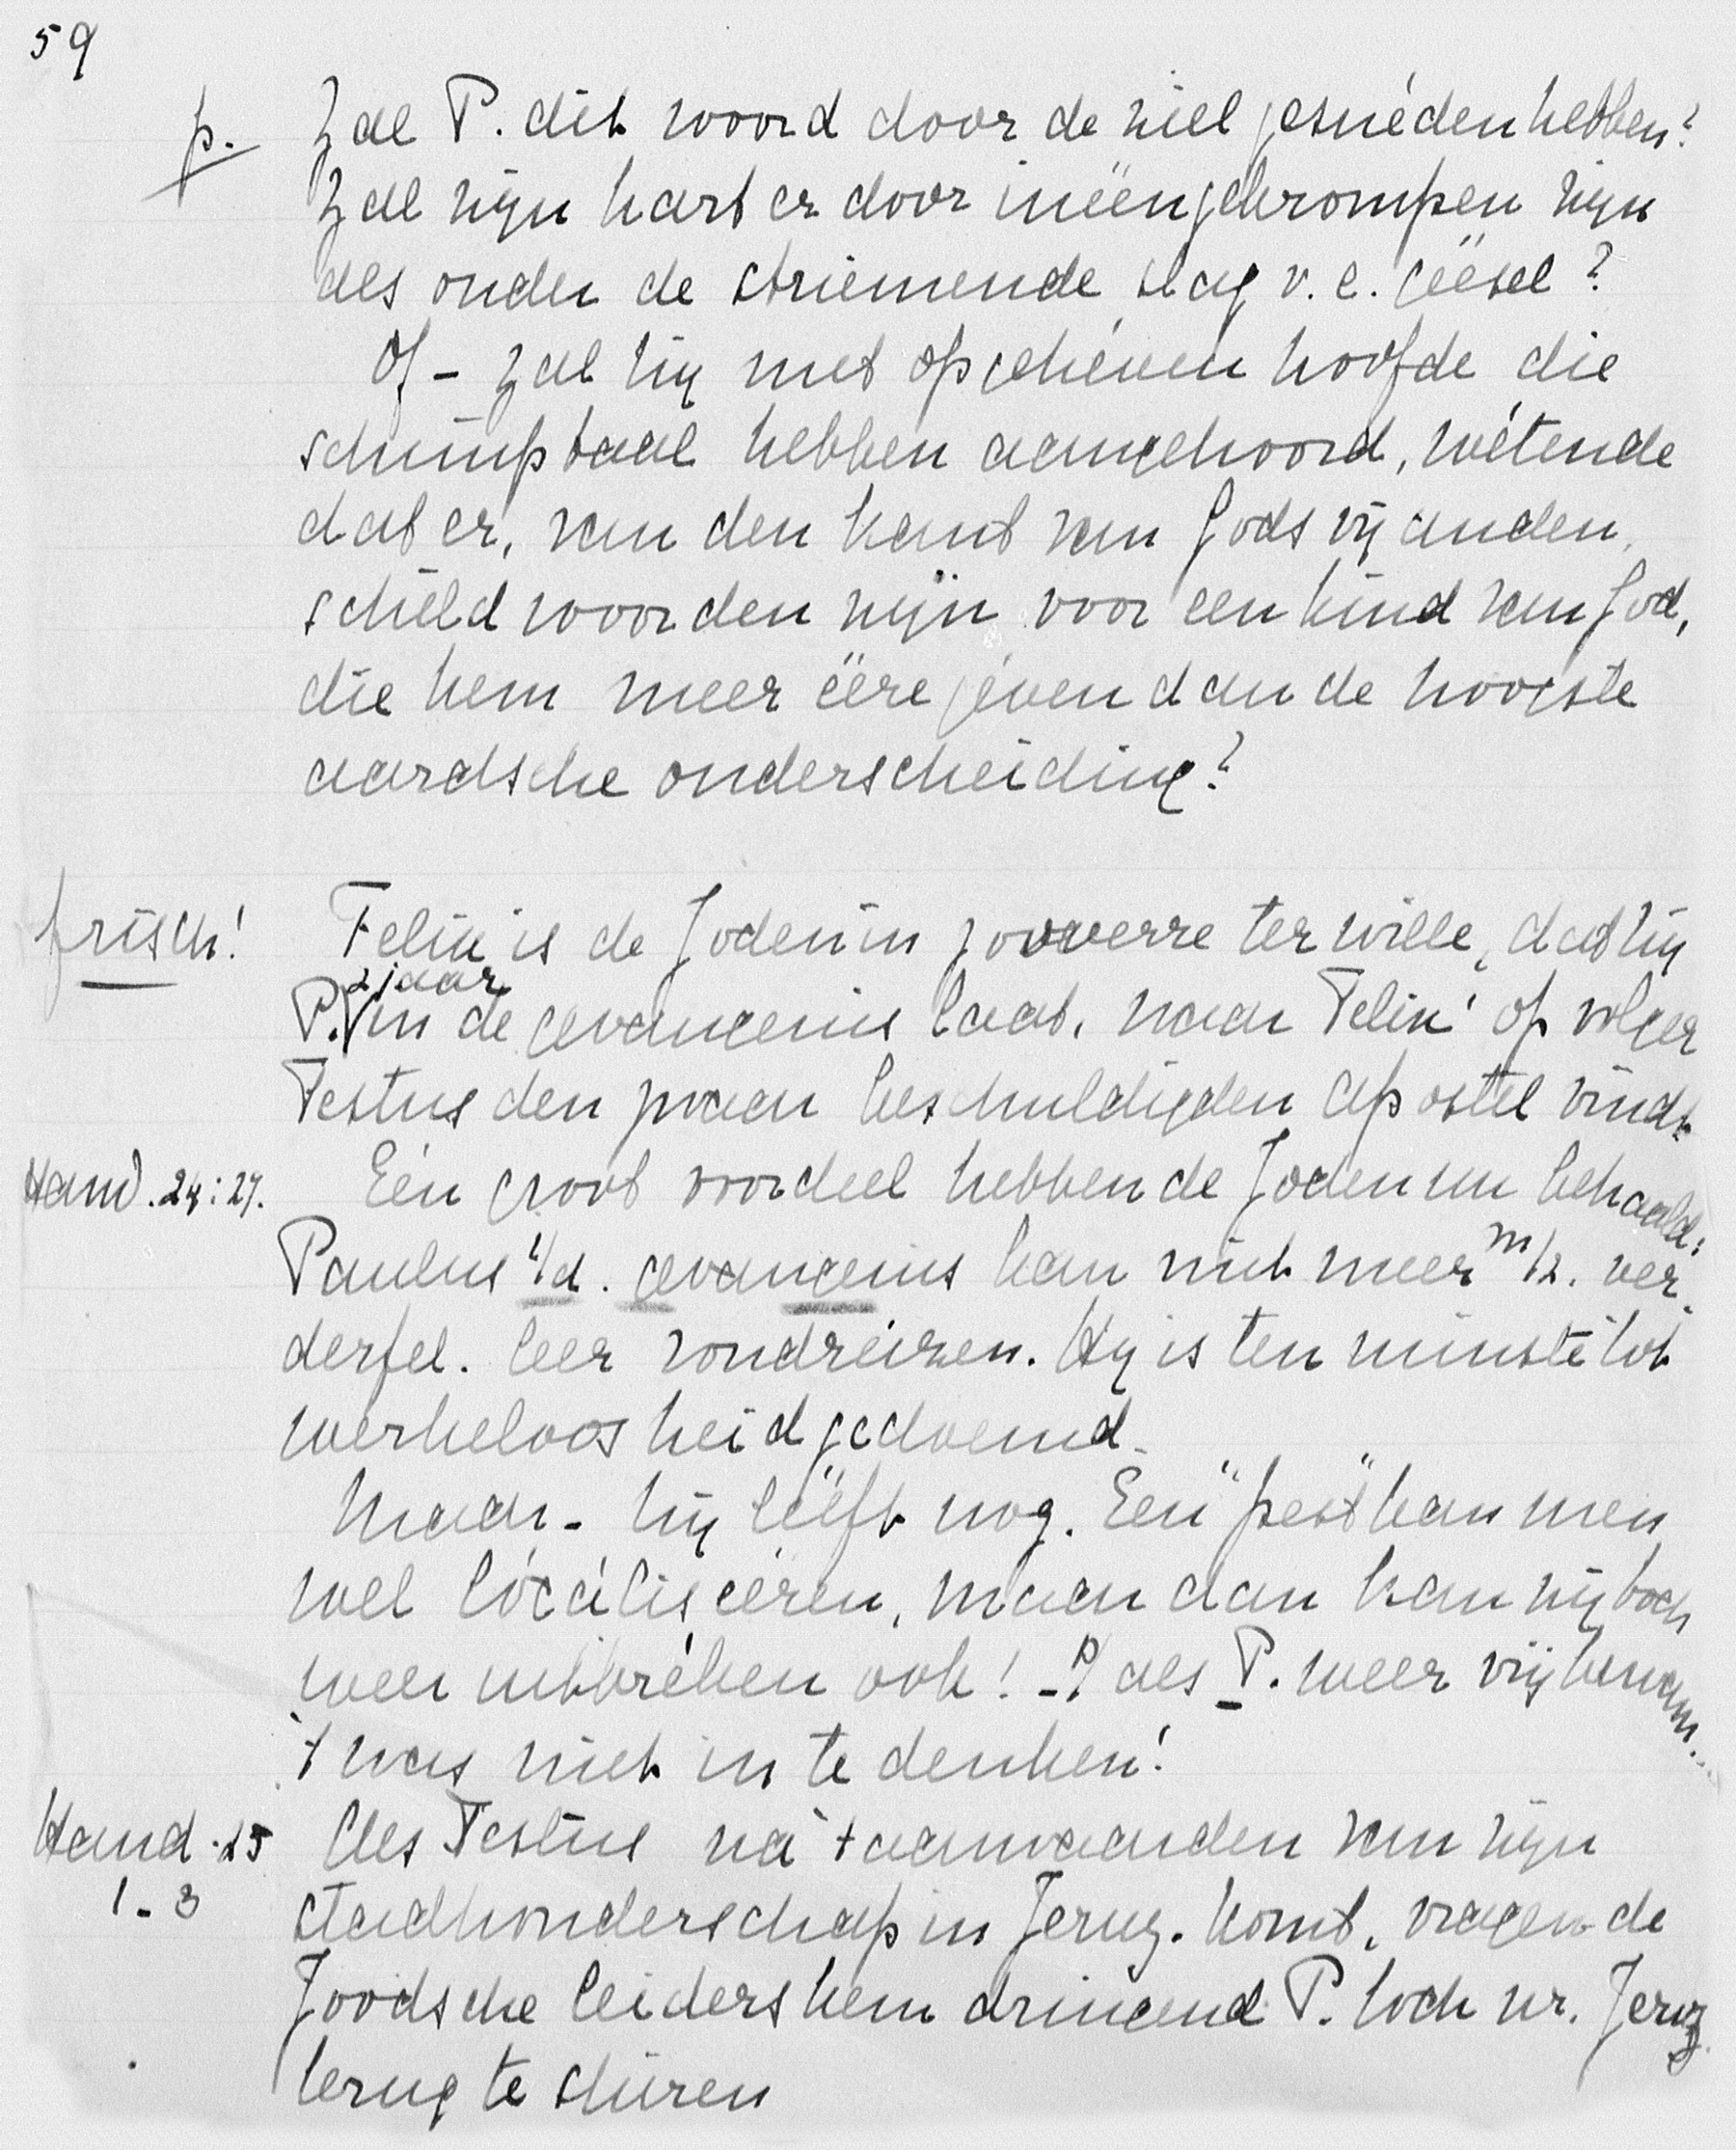 59
p. Zal P. dit woord door de ziel gesnéden hebben?
Zal zijn hart er door inëengekrompen zijn
als onder de striemende slag v. e. gëësel?
Of - zal hij met opgehéven hoofde die
schimptaal hebben aangehoord, wétende
dat er, van den kant van Gods vijanden,
scheldwoorden zijn voor een kind van God,
die hem meer ëëre géven dan de hoogste
aardsche onderscheiding?
frisch! Felix is de Joden in zooverre ter wille, dat hij
2 jaar
P. √ in de gevangenis laat, waar Felix' opvolger
Festus den zwaar beschuldigden apostel vindt.
Hand. 24:27. Eén groot voordeel hebben de Joden nu behaald:
Paulus i/d. gevangenis kan niet meer m/z. ver-
derfel. leer rondreizen. Hij is ten minste tot
werkeloosheid gedoemd.
Maar - hij lëëft nog. Een "pest" kan men
wel lócáliséeren, maar dan kan zij toch
weer uitbréken ook! - als P. weer vrij kwam...
't was niet in te denken!
Hand. 25 Als Festus ná 't aanvaarden van zijn
1-3 stadhouderschap in Jeruz. komt, vragen de
Joodsche leiders hem dringend P. toch nr. Jeruz.
terug te sturen